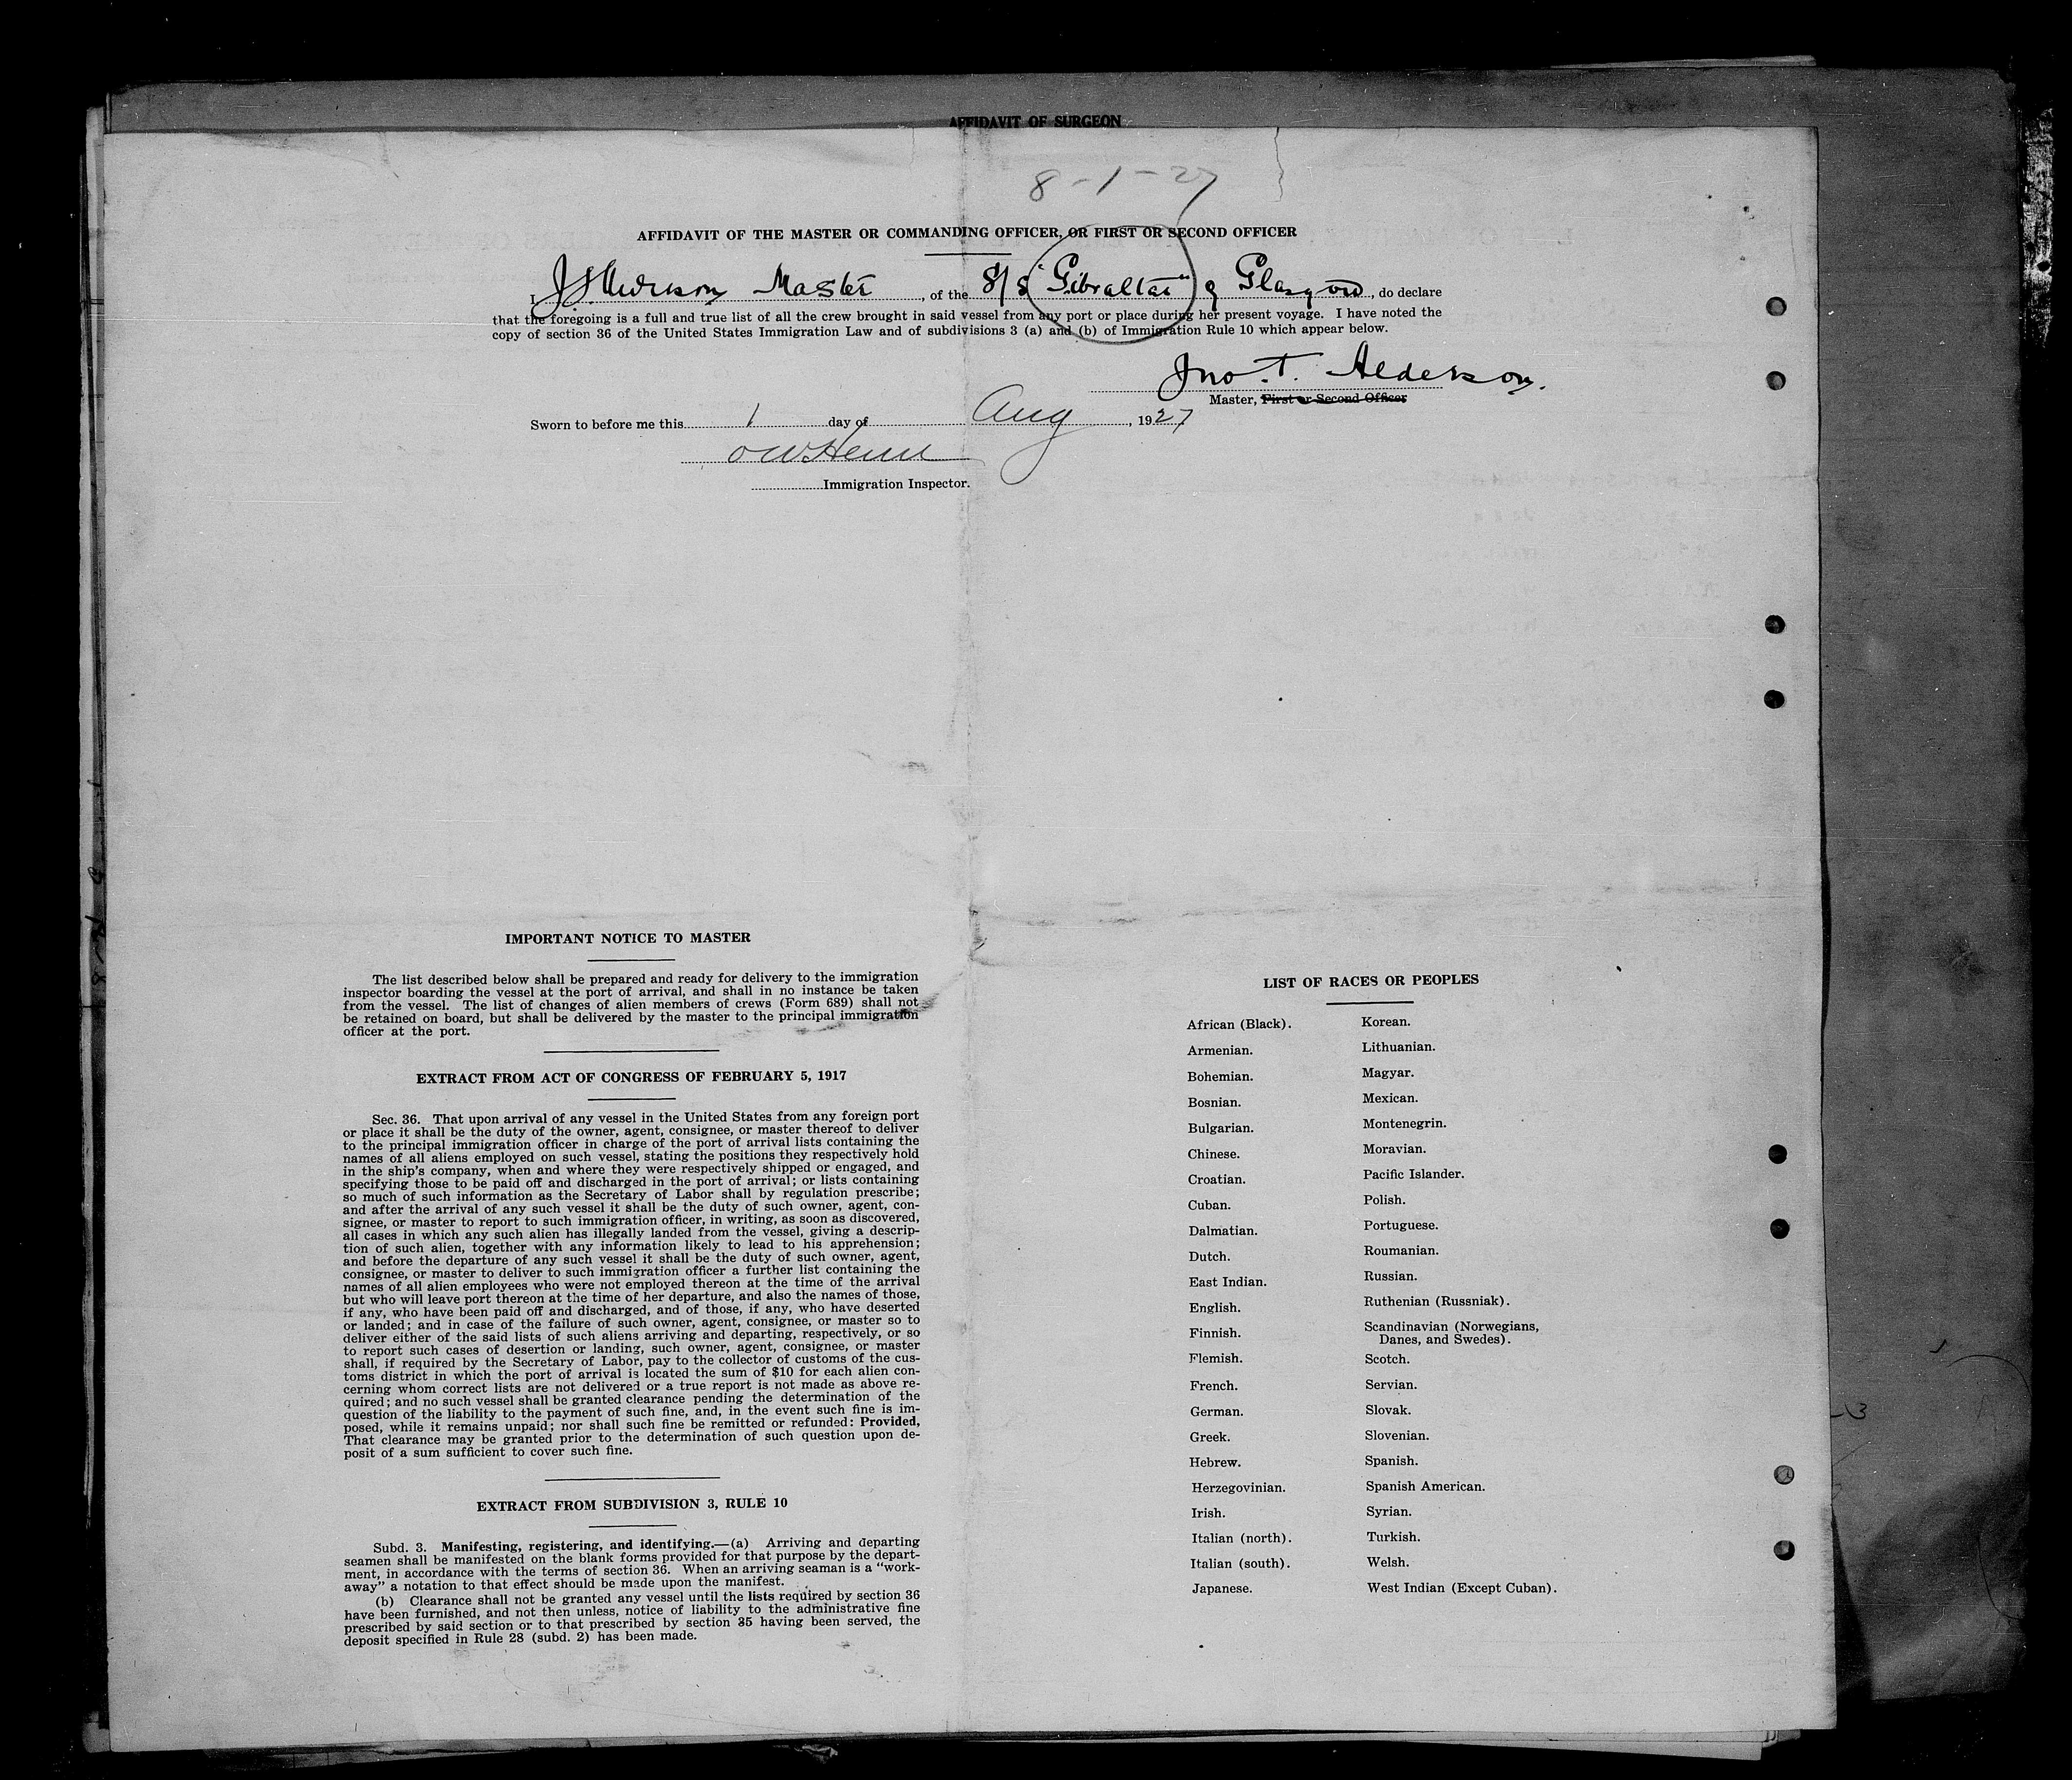 AFFIDAVIT OF SURGEON
8-1-27
AFFIDAVIT OF THE MASTER OR COMMANDING OFFICER, OR FIRST OR SECOND OFFICER
I J.T. Alderson Master, of the S/S "Gibraltar" of Glasgow, do declare
that the foregoing is a full and true list of all the crew brought in said vessel from any port or place during her present voyage. I have noted the
copy of section 36 of the United States Immigration Law and of subdivisions 3 (a) and (b) of Immigration Rule 10 which appear below.
Jno. T. Alderson.
Master, First or Second Officer
Sworn to before me this 1 day of Aug, 1927
Immigration Inspector.
IMPORTANT NOTICE TO MASTER
The list described below shall be prepared and ready for delivery to the immigration
inspector boarding the vessel at the port of arrival, and shall in no instance be taken
from the vessel. The list of changes of alien members of crews (Form 689) shall not
be retained on board, but shall be delivered by the master to the principal immigration
officer at the port.
EXTRACT FROM ACT OF CONGRESS OF FEBRUARY 5, 1917
Sec. 36. That upon arrival of any vessel in the United States from any foreign port
or place it shall be the duty of the owner, agent, consignee, or master thereof to deliver
to the principal immigration officer in charge of the port of arrival lists containing the
names of all aliens employed on such vessel, stating the positions they respectively hold
in the ship's company, when and where they were respectively shipped or engaged, and
specifying those to be paid off and discharged in the port of arrival; or lists containing
so much of such information as the Secretary of Labor shall by regulation prescribe;
and after the arrival of any such vessel it shall be the duty of such owner, agent, con-
signee, or master to report to such immigration officer, in writing, as soon as discovered,
all cases in which any such alien has illegally landed from the vessel, giving a descrip-
tion of such alien, together with any information likely to lead to his apprehension;
and before the departure of any such vessel it shall be the duty of such owner, agent,
consignee, or master to deliver to such immigration officer a further list containing the
names of all alien employees who were not employed thereon at the time of the arrival
but who will leave port thereon at the time of her departure, and also the names of those,
if any, who have been paid off and discharged, and of those, if any, who have deserted
or landed; and in case of the failure of such owner, agent, consignee, or master so to
deliver either of the said lists of such aliens arriving and departing, respectively, or so
to report such cases of desertion or landing, such owner, agent, consignee, or master
shall, if required by the Secretary of Labor, pay to the collector of customs of the cus-
toms district in which the port of arrival is located the sum of $10 for each alien con-
cerning whom correct lists are not delivered or a true report is not made as above re-
quired; and no such vessel shall be granted clearance pending the determination of the
question of the liability to the payment of such fine, and, in the event such fine is im-
posed, while it remains unpaid; nor shall such fine be remitted or refunded: Provided,
That clearance may be granted prior to the determination of such question upon de-
posit of a sum sufficient to cover such fine.
EXTRACT FROM SUBDIVISION 3, RULE 10
Subd. 3. Manifesting, registering, and identifying.—(a) Arriving and departing
seamen shall be manifested on the blank forms provided for that purpose by the depart-
ment, in accordance with the terms of section 36. When an arriving seaman is a "work-
away" a notation to that effect should be made upon the manifest.
(b) Clearance shall not be granted any vessel until the lists required by section 36
have been furnished, and not then unless, notice of liability to the administrative fine
prescribed by said section or to that prescribed by section 35 having been served, the
deposit specified in Rule 28 (subd. 2) has been made.
LIST OF RACES OR PEOPLES
African (Black).
Armenian.
Bohemian.
Bosnian.
Bulgarian.
Chinese.
Croatian.
Cuban.
Dalmatian.
Dutch.
East Indian.
English.
Finnish.
Flemish.
French.
German.
Greek.
Hebrew.
Herzegovinian.
Irish.
Italian (north).
Italian (south).
Japanese.
Korean.
Lithuanian.
Magyar.
Mexican.
Montenegrin.
Moravian.
Pacific Islander.
Polish.
Portuguese.
Roumanian.
Russian.
Ruthenian (Russniak).
Scandinavian (Norwegians,
Danes, and Swedes).
Scotch.
Servian.
Slovak.
Slovenian.
Spanish.
Spanish American.
Syrian.
Turkish.
Welsh.
West Indian (Except Cuban).